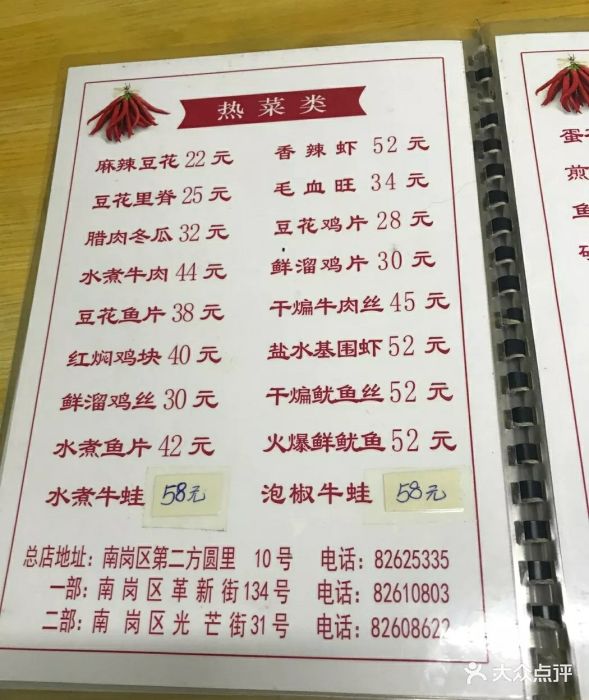 热菜类
麻辣豆花 22 元
豆花里脊 25 元
腊肉冬瓜 32 元
水煮牛肉 44 元
豆花鱼片 38 元
红焖鸡块 40 元
鲜溜鸡丝 30 元
水煮鱼片 42 元
水煮牛蛙 58元
香辣虾 52 元
毛血旺 34 元
豆花鸡片 28 元
鲜溜鸡片 30 元
干煸牛肉丝 45 元
盐水基围虾 52 元
干煸鱿鱼丝 52 元
火爆鲜鱿鱼 52 元
泡椒牛蛙 58元
总店地址：南岗区第二方圆里 10 号 电话：82625335
一部：南岗区革新街134号 电话：82610803
二部：南岗区光芒街31号 电话：82608622
蛋
煎
鱼
大众点评